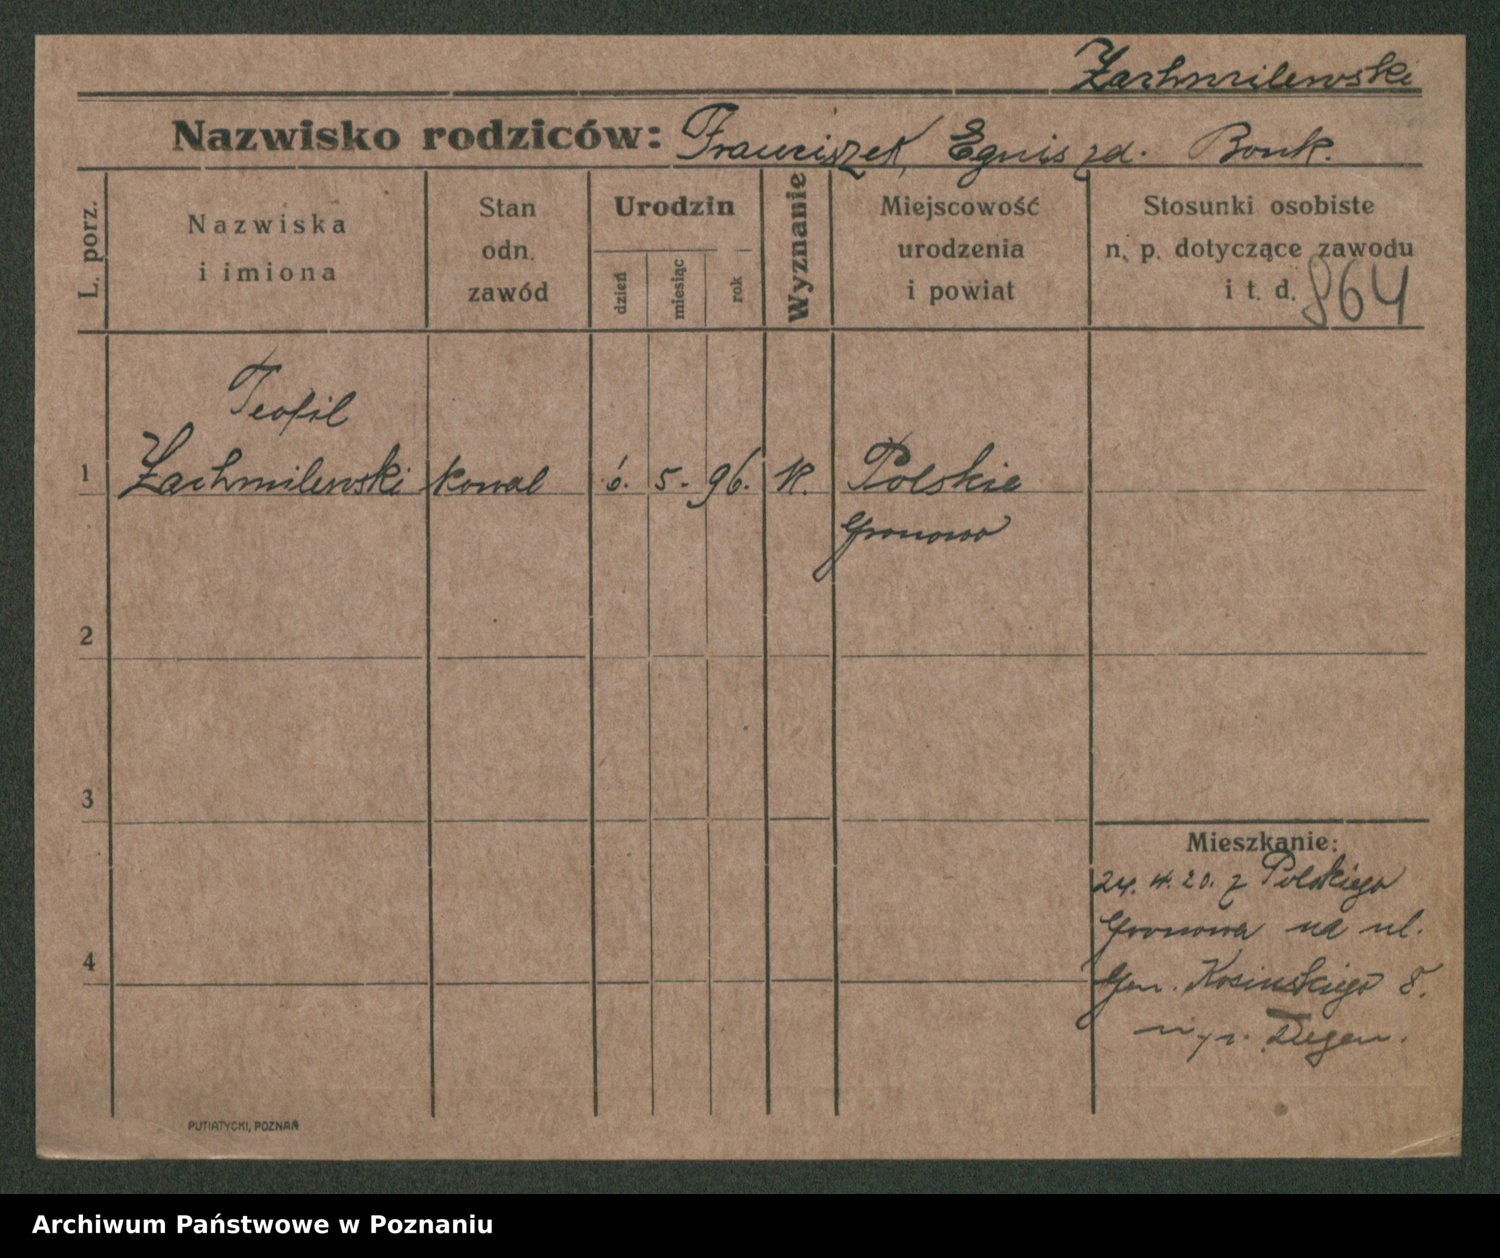 Zachmilewski
Nazwisko rodziców: Franciszek, Egnis zd. Bonk.
L. porz.
Nazwiska
i imiona
Stan
odn.
zawód
Urodzin
dzień
miesiąc
rok
Wyznanie
Miejscowość
urodzenia
i powiat
Stosunki osobiste
n. p. dotyczące zawodu
i t. d. 864
Teofil
1 Zachmilewski kowal 6. 5. 96. k. Polskie
Gronowo
2
3
Mieszkanie:
24. 4. 20. z Polskiego
Gronowa na ul.
4
Gen. Kosinskiego 8.
PUTIATYCKI, POZNAŃ
Archiwum Państwowe w Poznaniu